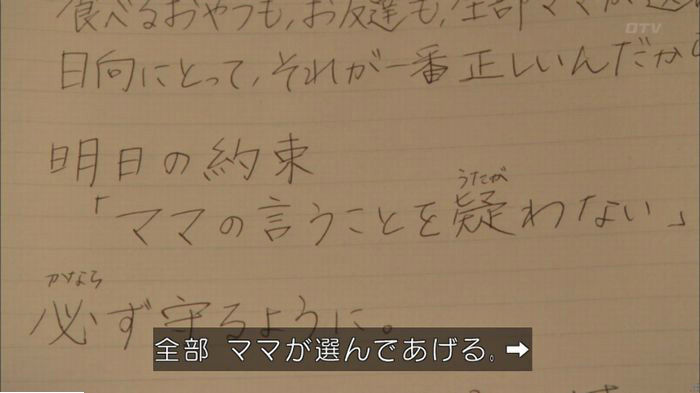 食べるおやつも、お友達も、全部ママが選
日向にとって、それが一番正しいんだから
明日の約束
「ママの言うことを疑わない」
うたが
必ず守るように。
かなら
全部 ママが選んであげる。➡
OTV